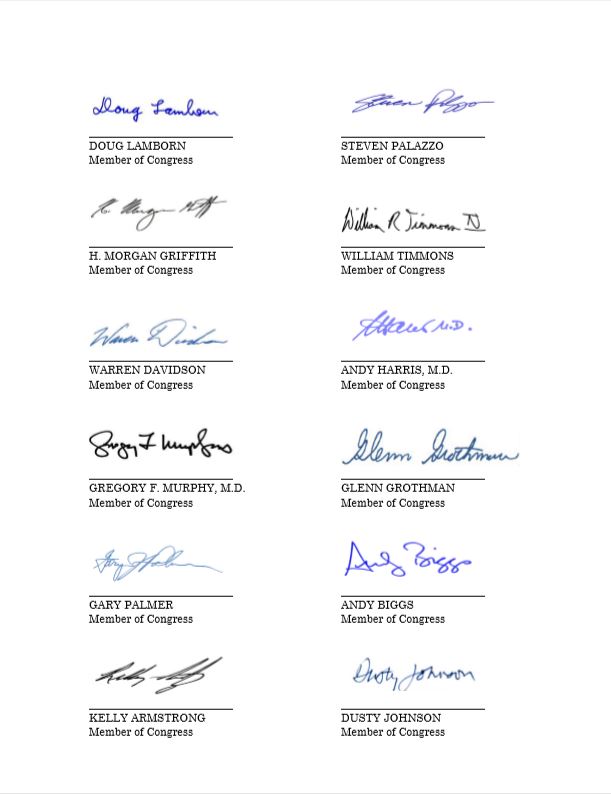 Doug Lamborn
Steven Palazzo
DOUG LAMBORN
Member of Congress
STEVEN PALAZZO
Member of Congress
William R Timmons IV
H. MORGAN GRIFFITH
Member of Congress
WILLIAM TIMMONS
Member of Congress
Warren Davidson
M.D.
WARREN DAVIDSON
Member of Congress
ANDY HARRIS, M.D.
Member of Congress
Gregory F Murphy
Glenn Grothman
GREGORY F. MURPHY, M.D.
Member of Congress
GLENN GROTHMAN
Member of Congress
Andy Biggs
GARY PALMER
Member of Congress
ANDY BIGGS
Member of Congress
Dusty Johnson
KELLY ARMSTRONG
Member of Congress
DUSTY JOHNSON
Member of Congress